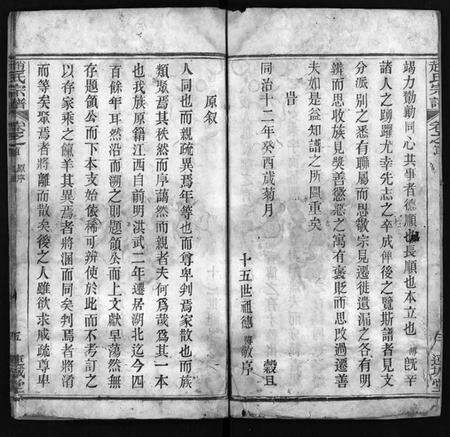 竭力勷勤同心其事者德順也長順也本立也
諸人之踴躍尤幸先志之卒成俾後之覽斯譜者見支
分派別之悉有聯屬而思敬宗見遷徙遺漏之各有明
辨而思收族見獎善懲惡之寓有褒貶而思改過遷善
夫如是益知譜之所關重矣
旹
同治十二年癸酉歲菊月 穀旦
十五世祖德 傳敬序
原叙
人同也而親疏異焉年等也而尊卑判焉家散也而族
類聚焉其秩然而序藹然而親者夫何為哉為其一本
也我族原籍江西自前明洪武二年遷居湖北迄今四
百餘年耳然沿而溯之則題領公而上文獻早蕩然無
存題領公而下本支始依稀可辨使於此而不考訂之
以存家乘之餼羊其異焉者將溷而同矣判焉者將淆
而等矣聚焉者將離而散矣後之人雖欲求咸疏尊卑
趙氏宗譜